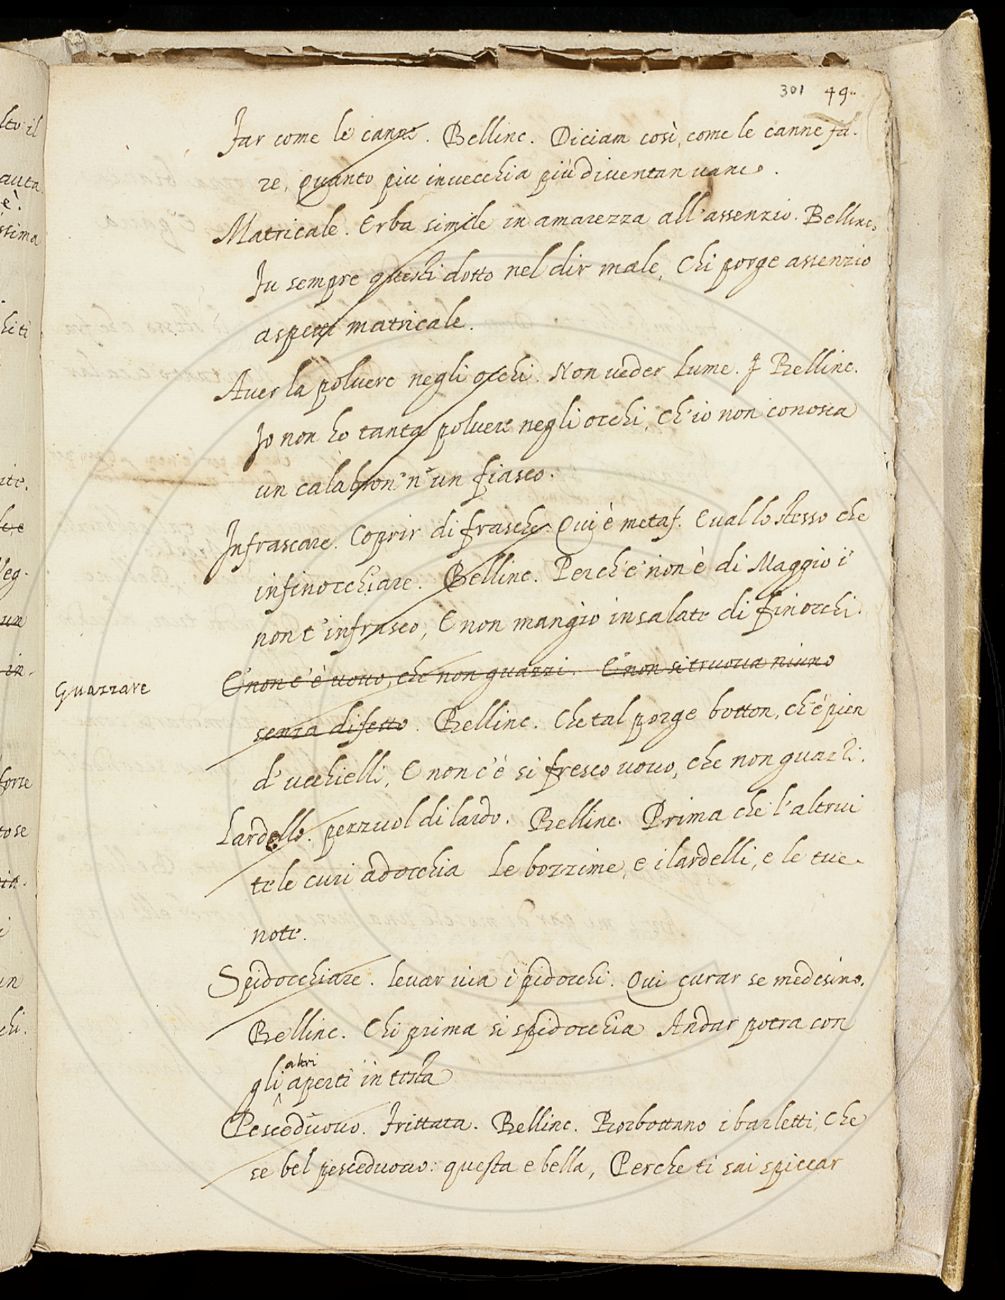 301 49.
Far come le canne. Bellinc. Diciam così, come le canne fa-
re, quanto piu invecchia più diventan vane.
Matricale. Erba simile in amarezza all'assenzio. Bellinc.
Fu sempre queshi dotto nel dir male, Chi porge assenzio
aspetti matricale.
Aver la polvere negli occhi. Non veder lume. Bellinc.
Io non ho tanta polvere negli occhi, Ch'io non conosca
un calabron n un fiasco.
Infrascare. Coprir di frasche. Qui è metaf. E val lo stesso che
infinocchiare. Bellinc. Perch'e' non è di Maggio i'
non t'infrasco, E non mangio insalate di finocchi.
Guazzare
E' non c'è uovo, che non guazzi. E' non si truova niuno
senza difetto. Bellinc. Che tal porge botton, ch'è pien
d'ucchielli, E non c'è si fresco uovo, che non guazzi.
Lardello. pezzuol di lardo. Bellinc. Prima che l'altrui
tele curi adocchia Le bozzime, e i lardelli, e le tue
note.
Spidocchiare. levar via i pidocchi. Qui curar se medesimo.
Bellinc. Chi prima si spidocchia Andar potra con
gli altri aperti in testa
Pesceduovo. Frittata. Bellinc. Borbottano i barletti, Che
se bel pesceduovo: questa e bella, Perche ti sai spiccar